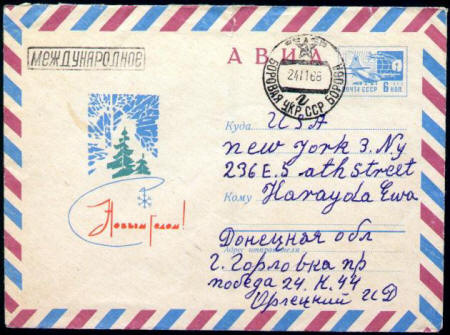 МЕЖДУНАРОДНОЕ
АВИА
БОРОВАЯ УКР. ССР БОРОВА
241168
ПОЧТА СССР 6 КОП
С Новым Годом!
Куда USA
new York 3. Ny
236 E. 5 ath street
Кому Harayda Ewa
Донецкая обл
Адрес отправителя
г. Горловка пр
победа 24. к. 44